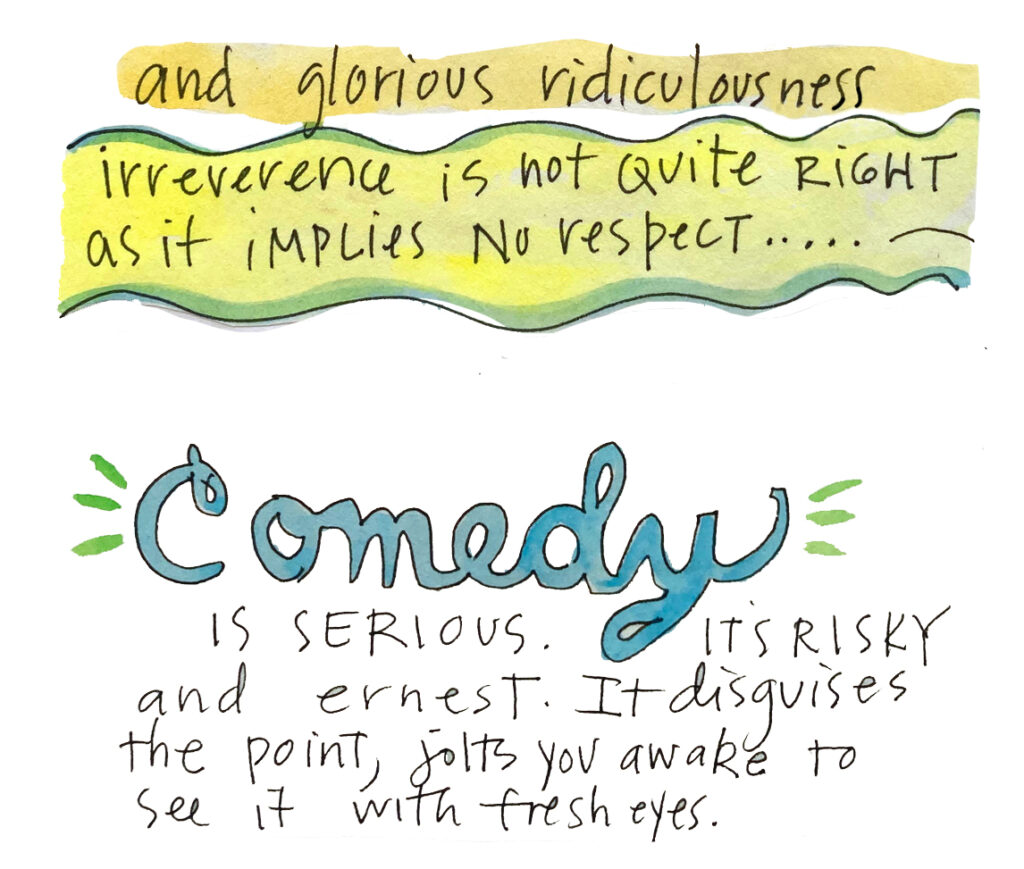 and glorious ridiculousness
irreverence is not QUITE RIGHT
as it iMPLies No respecT.....
Comedy
IS SERIOUS. IT'S RISKY
and ernest. It disguises
the point, jolts you awake to
see it with fresh eyes.